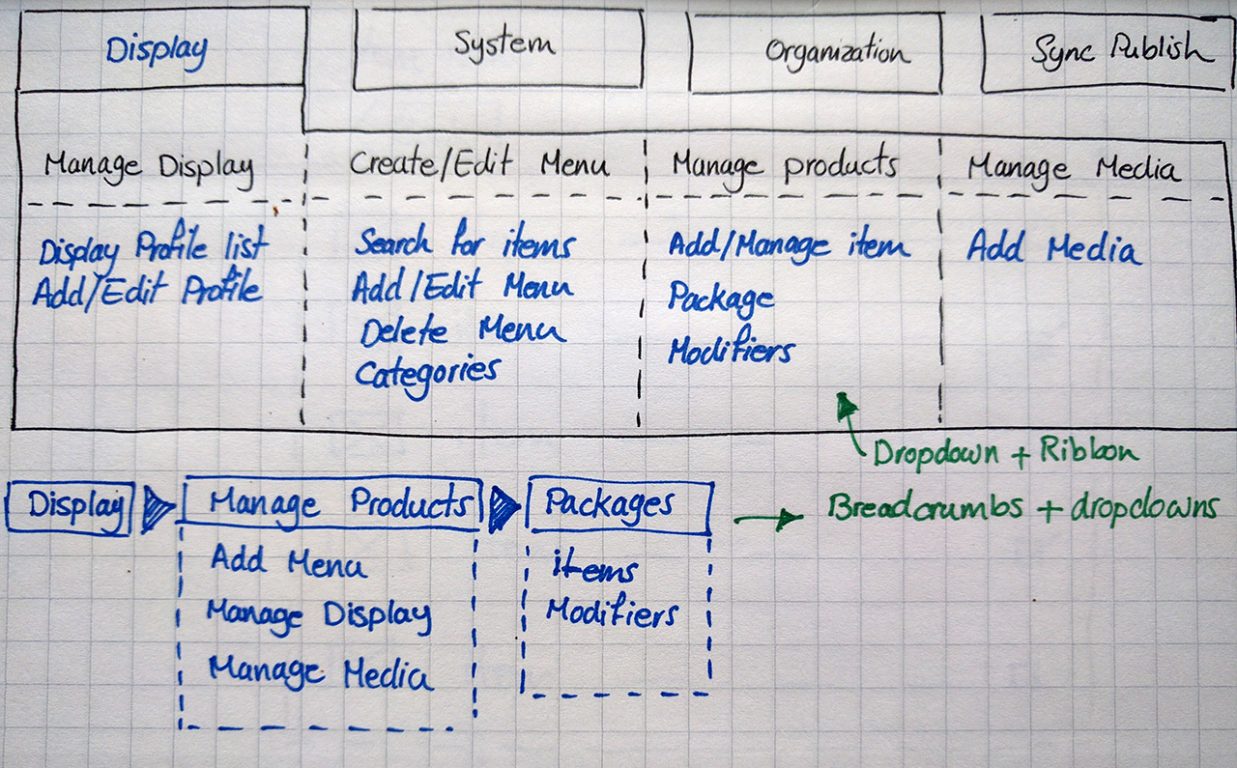 Display
System
Organization
Sync Publish
Manage Display
Create/Edit Menu
Manage products
Manage Media
Display Profile list
Add/Edit Profile
Search for items
Add/Edit Menu
Delete Menu
Categories
Add/Manage item
Package
Modifiers
Add Media
Dropdown + Ribbon
Display
Manage Products
Packages
Breadcrumbs + dropdowns
Add Menu
Manage Display
Manage Media
items
Modifiers